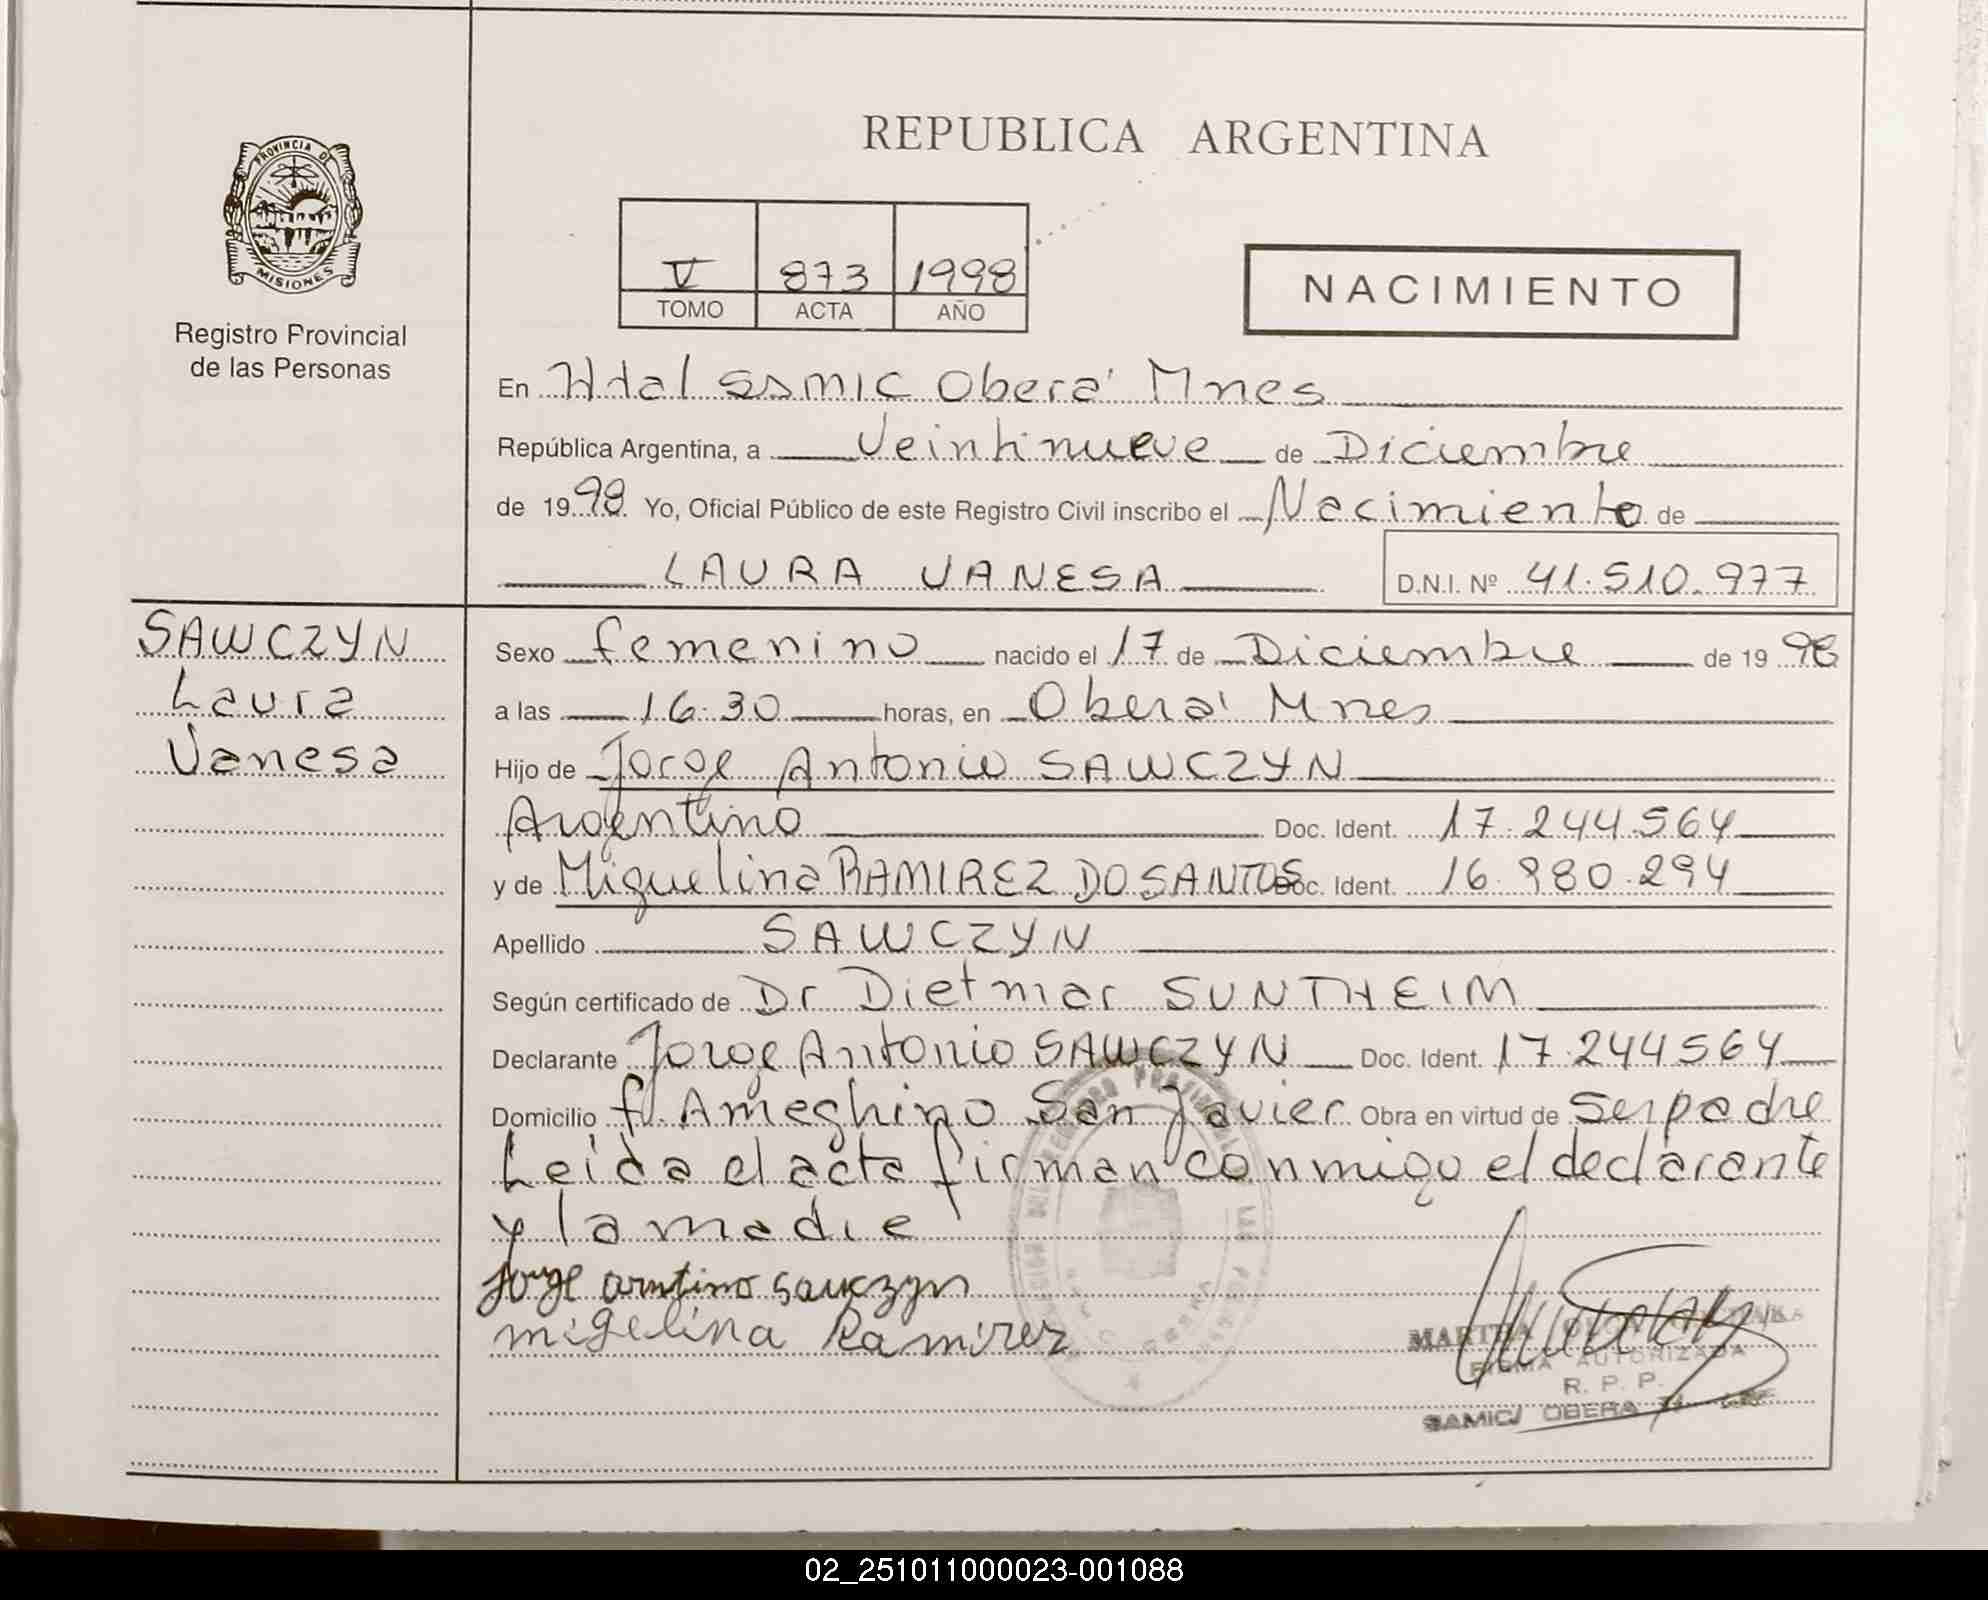 PROVINCIA DE
MISIONES
Registro Provincial
de las Personas
REPUBLICA ARGENTINA
V 873 1998
TOMO ACTA AÑO
NACIMIENTO
En Htal SSMIC Oberá Mnes
República Argentina, a Veintinueve de Diciembre
de 1998 Yo, Oficial Público de este Registro Civil inscribo el Nacimiento de
LAURA VANESA D.N.I. Nº 41.510.977
SAWCZYN
Laura
Vanesa
Sexo femenino nacido el 17 de Diciembre de 1998
a las 16:30 horas, en Oberá Mnes
Hijo de Jorge Antonio SAWCZYN
Argentino Doc. Ident. 17.244.564
y de Miguelina RAMIREZ DO SANTOS Doc. Ident. 16.980.294
Apellido SAWCZYN
Según certificado de Dr Dietmar SUNTHEIM
Declarante Jorge Antonio SAWCZYN Doc. Ident. 17.244.564
Domicilio f. Ameghino San Javier Obra en virtud de Ser padre
Leida el acta firman conmigo el declarante
y la madre
Jorge Sawczyn
migelina Ramirez
MARTHA
FIRMA AUTORIZADA
R. P. P.
SAMIC/ OBERA
02_251011000023-001088